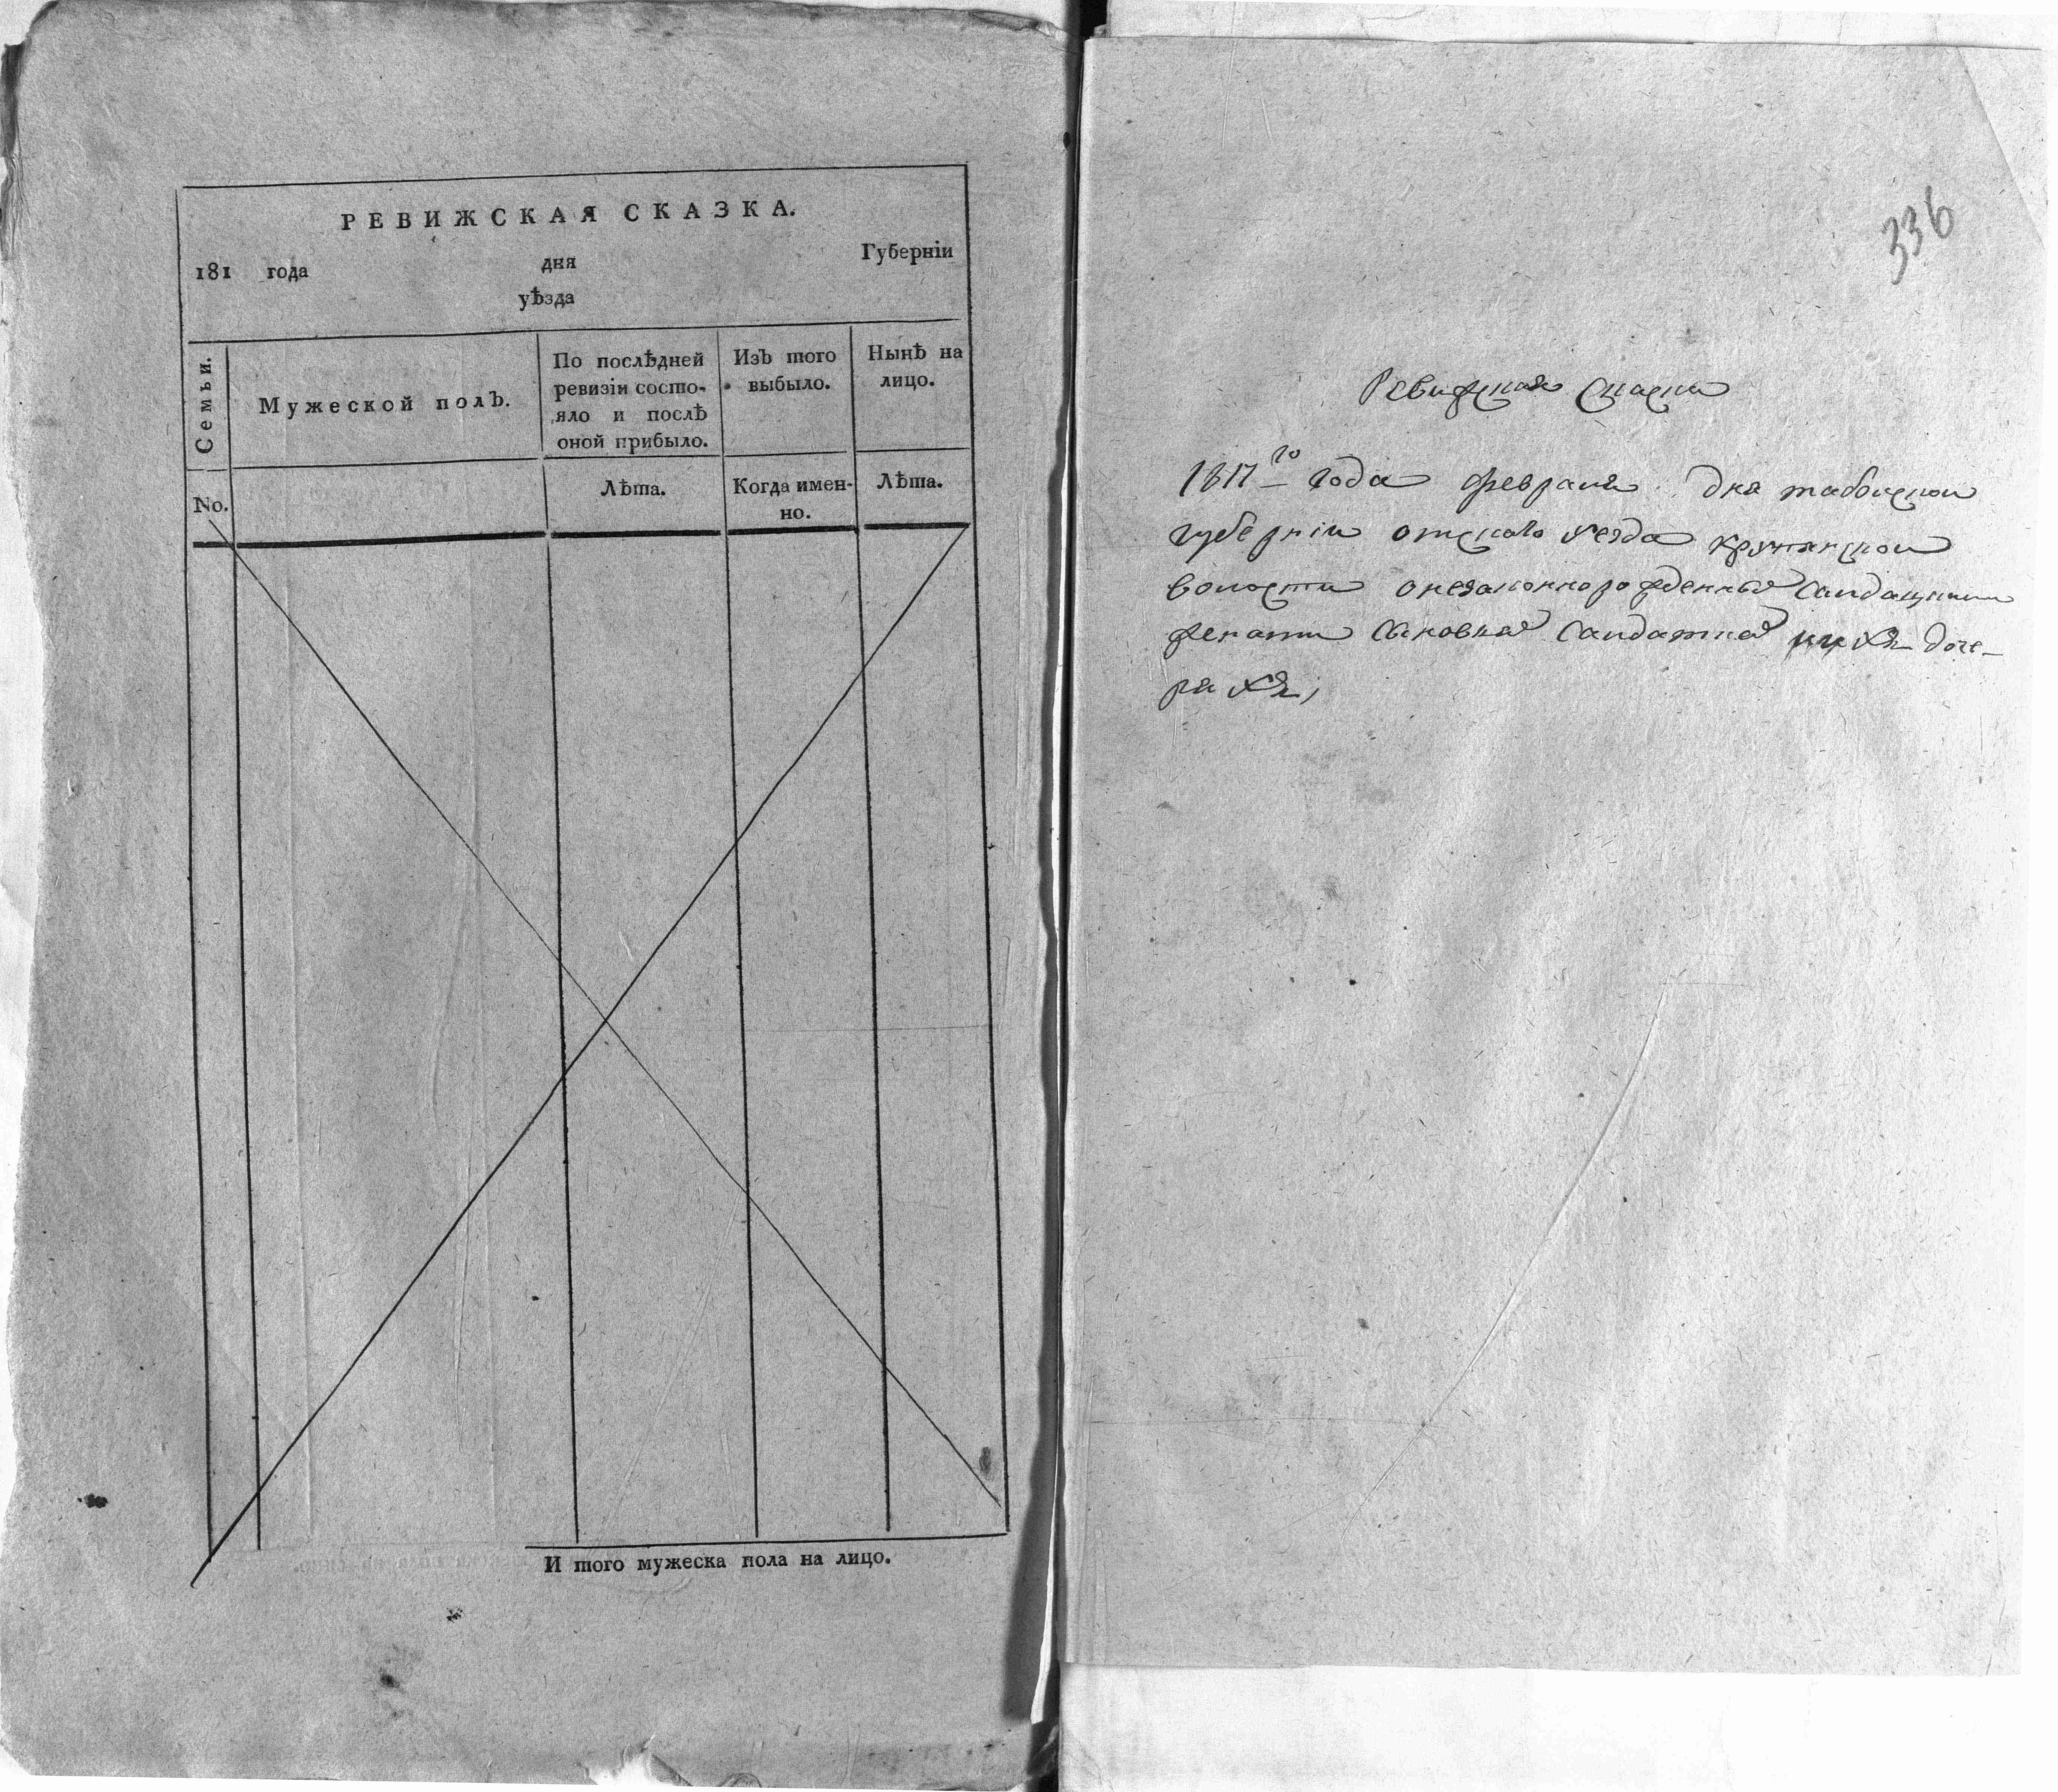 РЕВИЖСКАЯ СКАЗКА.
181 года дня Губерніи
уѣзда
Семьи.
Мужеской полъ.
По послѣдней
ревизіи состо-
яло и послѣ
оной прибыло.
Изъ того
выбыло.
Нынѣ на
лицо.
No.
Лѣта.
Когда имен-
но.
Лѣта.
И того мужеска пола на лицо.
336
Ревижская Скаска
1817го года февраля дня тобольской
губерніи омскаго уезда крутинской
волости онезаконнорожденныхъ Салдацкими
женами сыновьяхъ Салдатскихъ ихъ доче-
ряхъ,